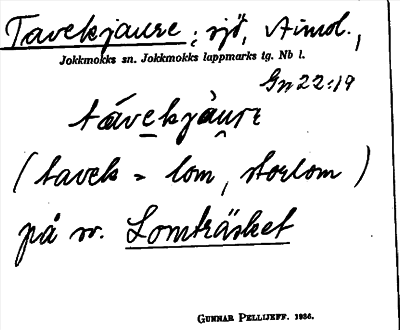 Tavekjaure; sjö,
Jokkmokks sn. Jokkmokks lappmarks tg. Nb l.
Gn 22:19
távekjàurε
(tavek = lom, storlom)
på sv. Lomträsket
GUNNAR PELLIJEFF. 1936.